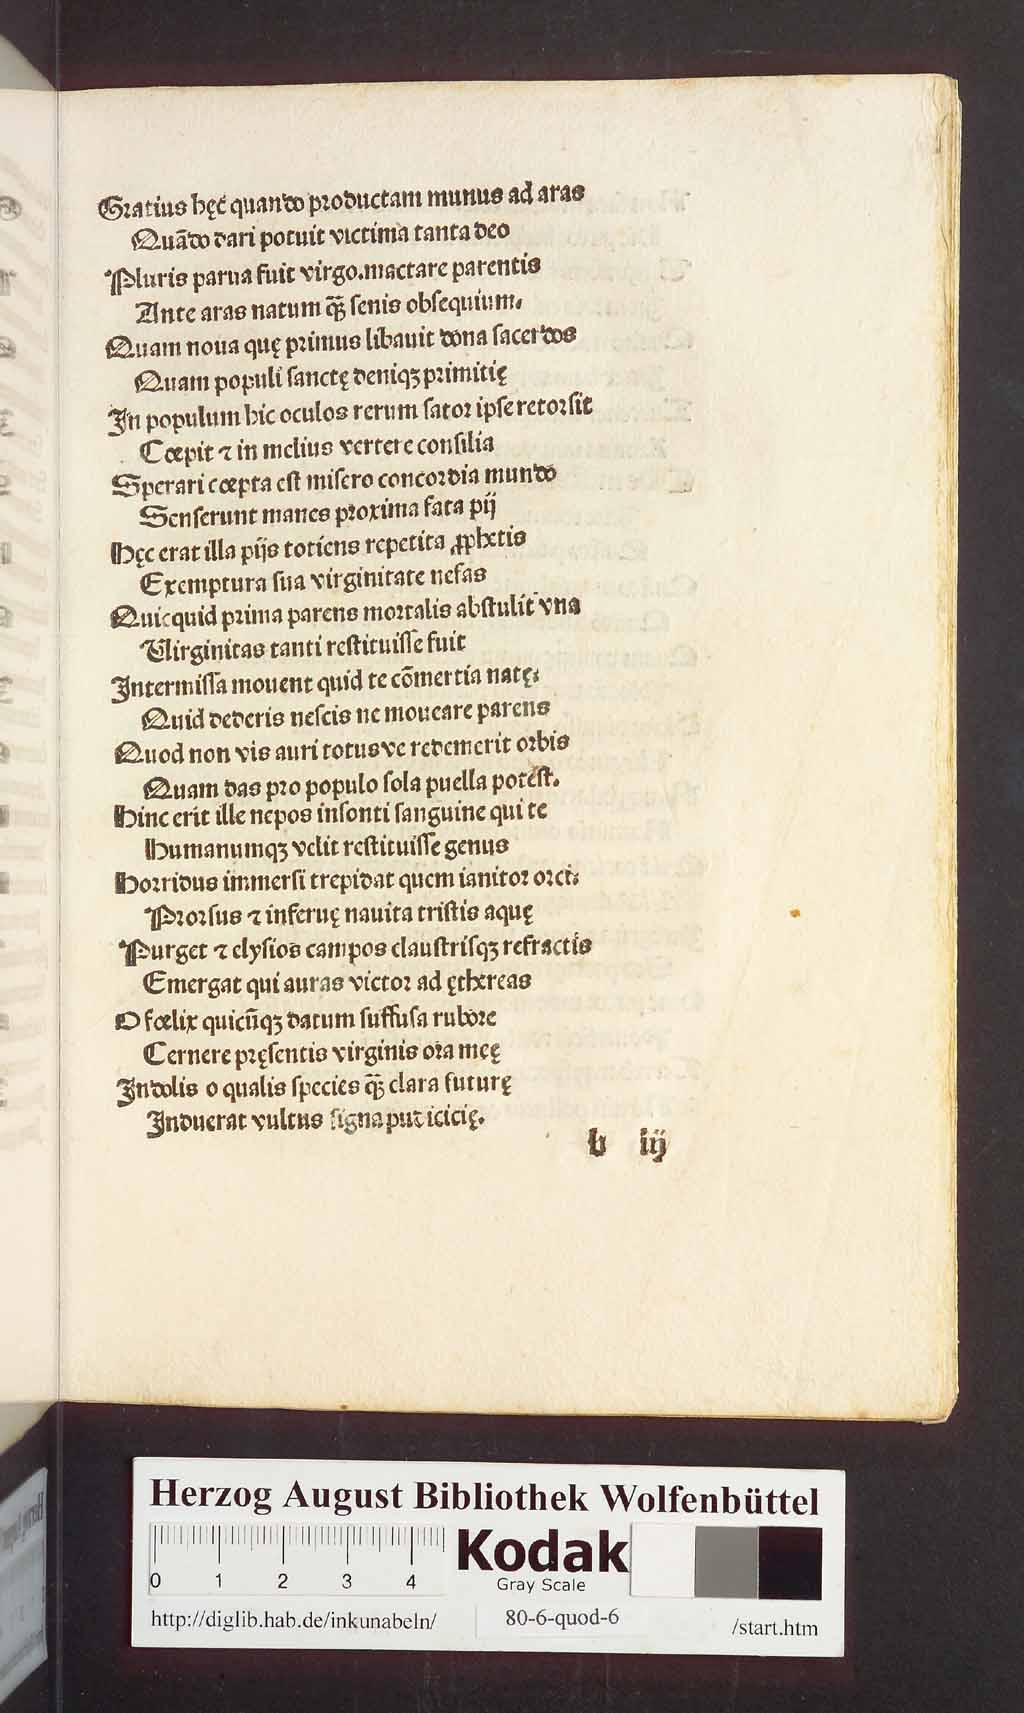 Gratius hęc quando productam munus ad aras
Quãdo dari potuit victima tanta deo
Pluris parua fuit virgo.mactare parentis
Ante aras natum q̃ꝫ senis obsequium.
Quam noua quę primus libauit dona sacerdos
Quam populi sanctę deniqꝫ primitię
In populum hic oculos rerum sator ipse retorsit
Cœpit ⁊ in melius vertere consilia
Sperari cœpta est misero concordia mundo
Senserunt manes proxima fata pij
Hęc erat illa pijs totiens repetita ꝓphetis
Exemptura sua virginitate nefas
Quicquid prima parens mortalis abstulit vna
Virginitas tanti restituisse fuit
Intermissa mouent quid te cõmertia natę.
Quid dederis nescis ne moueare parens
Quod non vis auri totusve redemerit orbis
Quam das pro populo sola puella potest.
Hinc erit ille nepos insonti sanguine qui te
Humanumqꝫ velit restituisse genus
Horridus immersi trepidat quem ianitor orci.
Prorsus ⁊ infernę nauita tristis aquę
Purget ⁊ elysios campos claustrisqꝫ refractis
Emergat qui auras victor ad ęthereas
O fœlix quicũqꝫ datum suffusa rubore
Cernere pręsentis virginis ora meę
Indolis o qualis species q̃ꝫ clara futurę
Induerat vultus signa pudicicię.
b iij
Herzog August Bibliothek Wolfenbüttel
0 1 2 3 4
Kodak
Gray Scale
http://diglib.hab.de/inkunabeln/ 80-6-quod-6 /start.htm